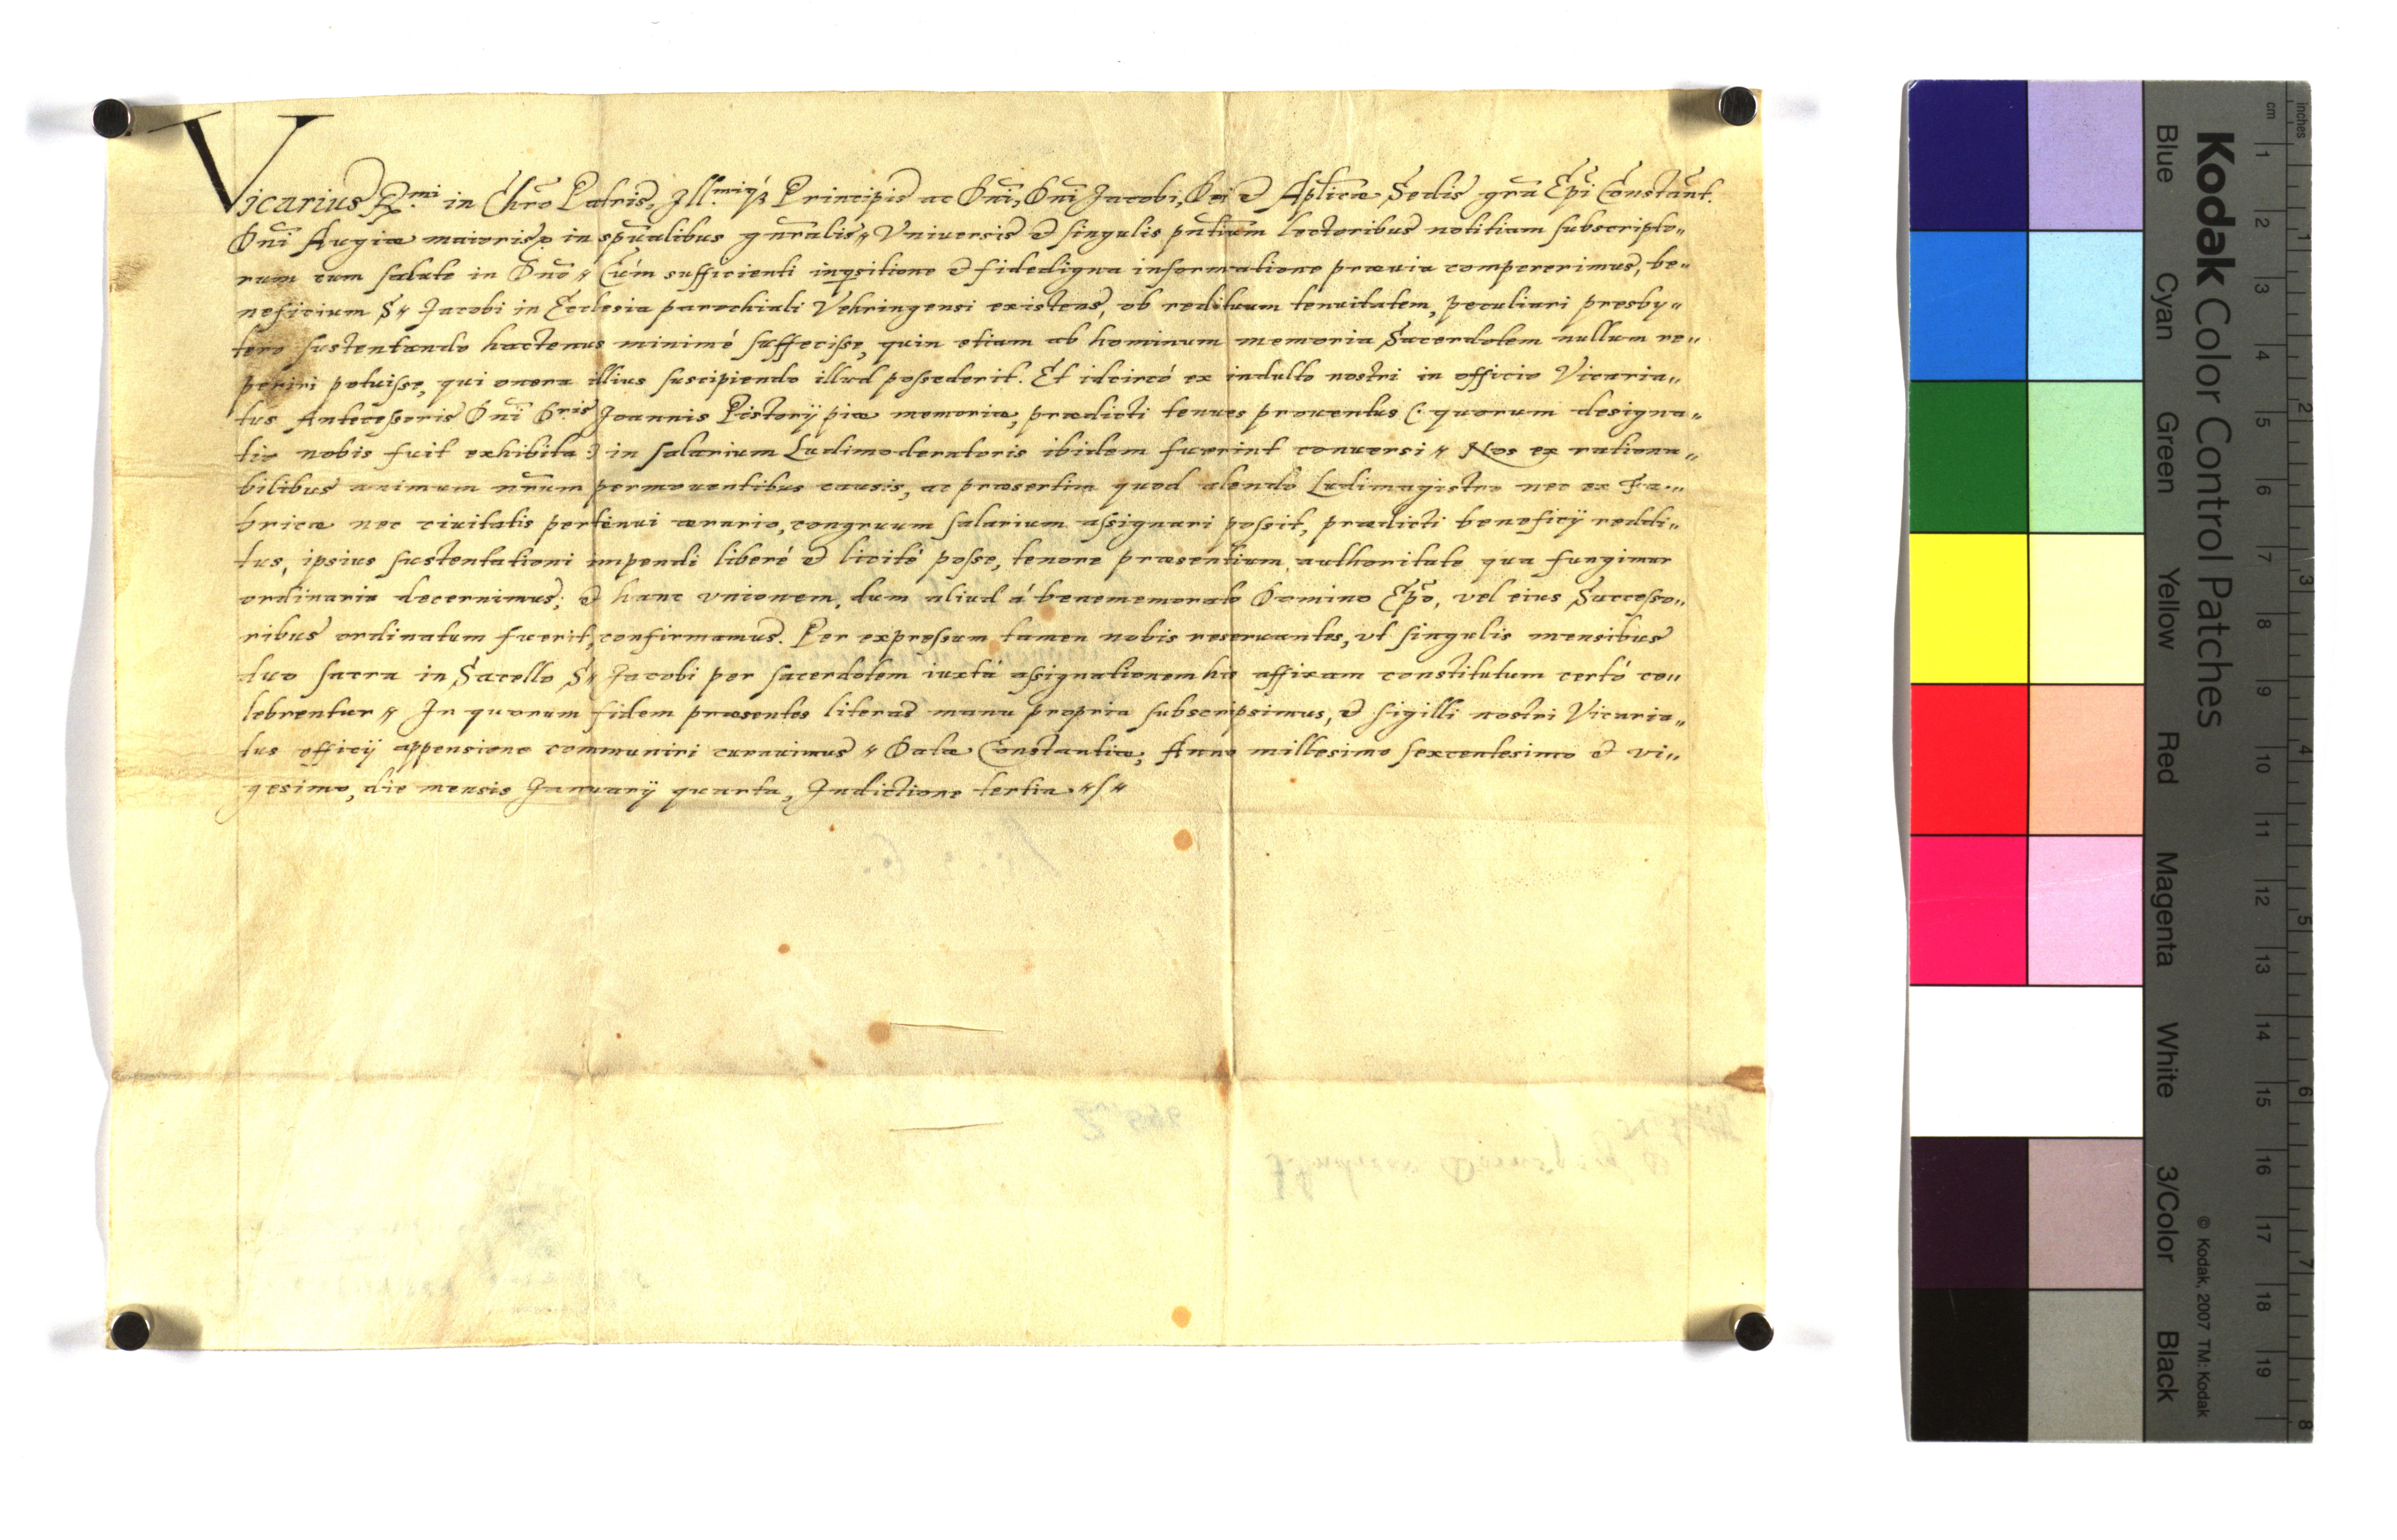 Vicarius R.mi in Chr̃o Patris, Ill.miq́ꝫ Principis ac Dñi, Dñi Jacobi, Dei et Aplicæ Sedis grã Epĩ Constant.
Dñi Augiæ maioris in spũalibus gñralis〃 Vniuersis et singulis pñtium lectoribus notitiam subscripto〃
rum cum salute in Dño〃 Cúm sufficienti inqsitione et fidedigna informatione præuia compererimus, be〃
neficium S〃 Jacobi in Ecclesia parochiali Vehringensi existens, ob redituum tenuitatem, peculiari presby〃
tero sustentando hactenus minimé suffecisse, quin etiam ab hominum memoria Sacerdotem nullum re〃
periri potuisse, qui onera illius suscipiendo illud possederit. Et idcircó ex indulto nostri in officio Vicaria〃
tus Antecessoris Dñi D.ris Joannis Pistorij piæ memoriæ, prædicti tenues prouentus (: quorum designa〃
tio nobis fuit exhibita :) in salarium Ludimoderatoris ibidem fuerint conuersi〃 Nos ex rationa〃
bilibus animum nr̃um permouentibus causis, ac præsertim quod alendo Ludimagistro nec ex Fa〃
bricæ nec ciuitatis pertenui ærario, congruum salarium assignari possit, prædicti beneficij reddi〃
tus, ipsius sustentationi impendi liberé et licité posse, tenore præsentium, authoritate qua fungimur
ordinaria decernimus; et hanc vnionem, dum aliud á benememorato Domino Ep̃o, vel eius Successo〃
ribus ordinatum fuerit, confirmamus. Per expressum tamen nobis reseruantes, vt singulis mensibus
duo sacra in Sacello S〃 Jacobi per sacerdotem iuxtá assignationem hic affixam constitutum certó ce〃
lebrentur〃 In quorum fidem præsentes literas manu propria subscripsimus, et sigilli nostri Vicaria〃
tus officij appensione communiri curauimus〃 Datæ Constantiæ, Anno millesimo sexcentesimo et vi〃
gesimo, die mensis Januarij quarta, Indictione tertia〃/〃
Kodak Color Control Patches
Blue Cyan Green Yellow Red Magenta White 3/Color Black
© Kodak, 2007 TM: Kodak
cm 1 2 3 4 5 6 7 8 9 10 11 12 13 14 15 16 17 18 19
inches 1 2 3 4 5 6 7 8